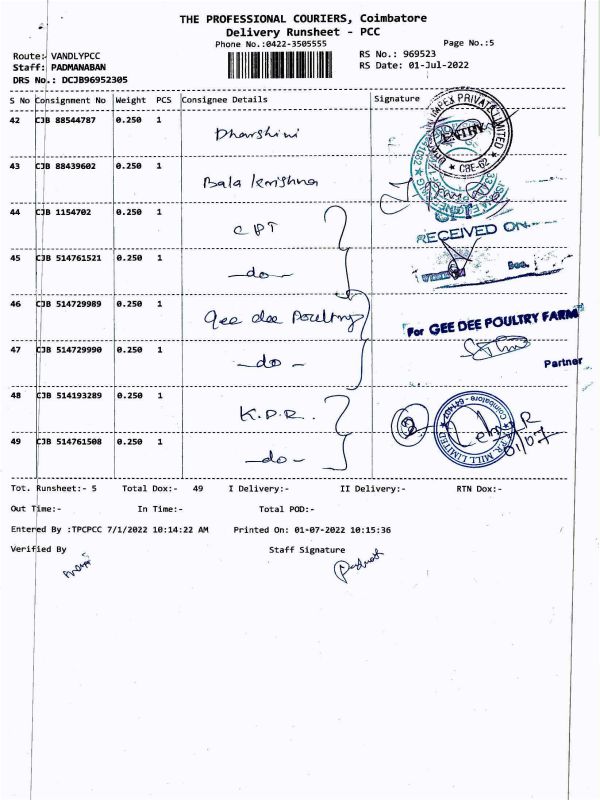 THE PROFESSIONAL COURIERS, Coimbatore
Delivery Runsheet - PCC
Phone No.:0422-3505555
Page No.:5
Route: VANDLYPCC
RS No.: 969523
Staff: PADMANABAN
RS Date: 01-Jul-2022
DRS No.: DCJB96952305
S No Consignment No Weight PCS Consignee Details Signature
42 CJB 88544787 0.250 1 Dharshini
43 CJB 88439602 0.250 1 Bala krishna
44 CJB 1154702 0.250 1 CPT
RECEIVED ON
45 CJB 514761521 0.250 1 -do-
46 CJB 514729989 0.250 1 Gee dee Poultry
For GEE DEE POULTRY FARM
47 CJB 514729990 0.250 1 -do-
Partner
48 CJB 514193289 0.250 1 K.P.R.
49 CJB 514761508 0.250 1 -do-
01/07
Tot. Runsheet:- 5 Total Dox:- 49 I Delivery:- II Delivery:- RTN Dox:-
Out Time:- In Time:- Total POD:-
Entered By :TPCPCC 7/1/2022 10:14:22 AM Printed On: 01-07-2022 10:15:36
Verified By Staff Signature